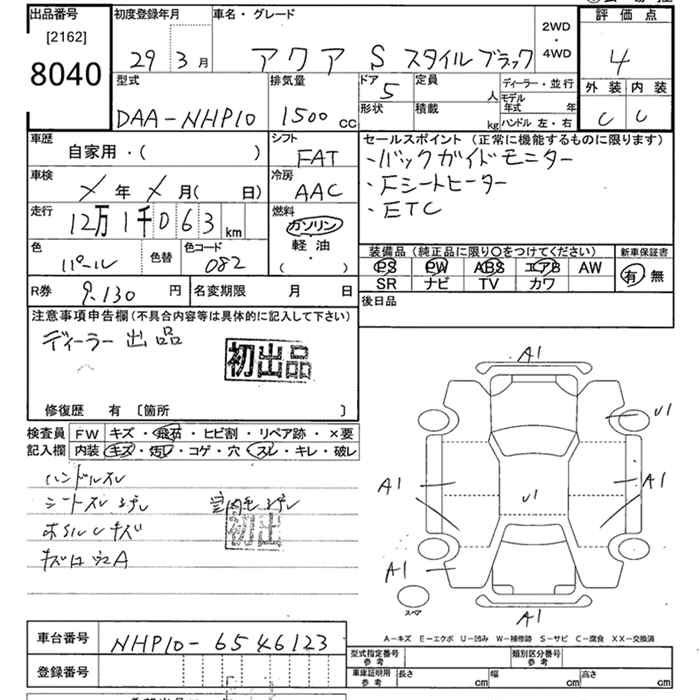 出品番号 初度登録年月 車名・グレード 評価点
[2162]
8040
29 年 3 月 アクア S スタイルブラック 2WD・4WD 4
型式 排気量 ドア 定員 ディーラー・並行 外装 内装
DAA-NHP10 1500 cc 5 人 モデル年式 年 C C
形状 積載 kg ハンドル 左・右
車歴 シフト セールスポイント (正常に機能するものに限ります)
自家用・( ) FAT ・バックガイドモニター
車検 冷房 ・Fシートヒーター
年 月( 日) AAC ・ETC
走行 12万1千063 km 燃料 ガソリン
軽油
( ・ )
色 パール 色替 色コード 082
装備品(純正品に限り○をつけてください) 新車保証書
PS PW ABS エアB AW 有 無
SR ナビ TV カワ
R券 9,130 円 名変期限 月 日 後日品
注意事項申告欄(不具合内容等は具体的に記入して下さい)
ディーラー出品
初出品
修復歴 有 〔箇所 〕
検査員 FW キズ・飛石・ヒビ割・リペア跡・×要
記入欄 内装 キズ・汚レ・コゲ・穴・スレ・キレ・破レ
ハンドルスレ
初出
A1
U1
A1 A1
U1
A1
A1
スペア
A-キズ E-エクボ U-凹み W-補修跡 S-サビ C-腐食 XX-交換済
車台番号 NHP10-6546123
登録番号
型式指定番号 参考 類別区分番号 参考
車庫証明用 参考 長さ cm 幅 cm 高さ cm